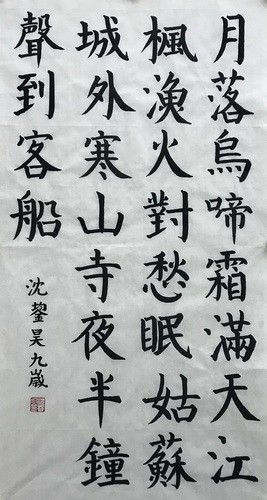 月落烏啼霜滿天江
楓漁火對愁眠姑蘇
城外寒山寺夜半鐘
聲到客船
沈鋆昊九歲